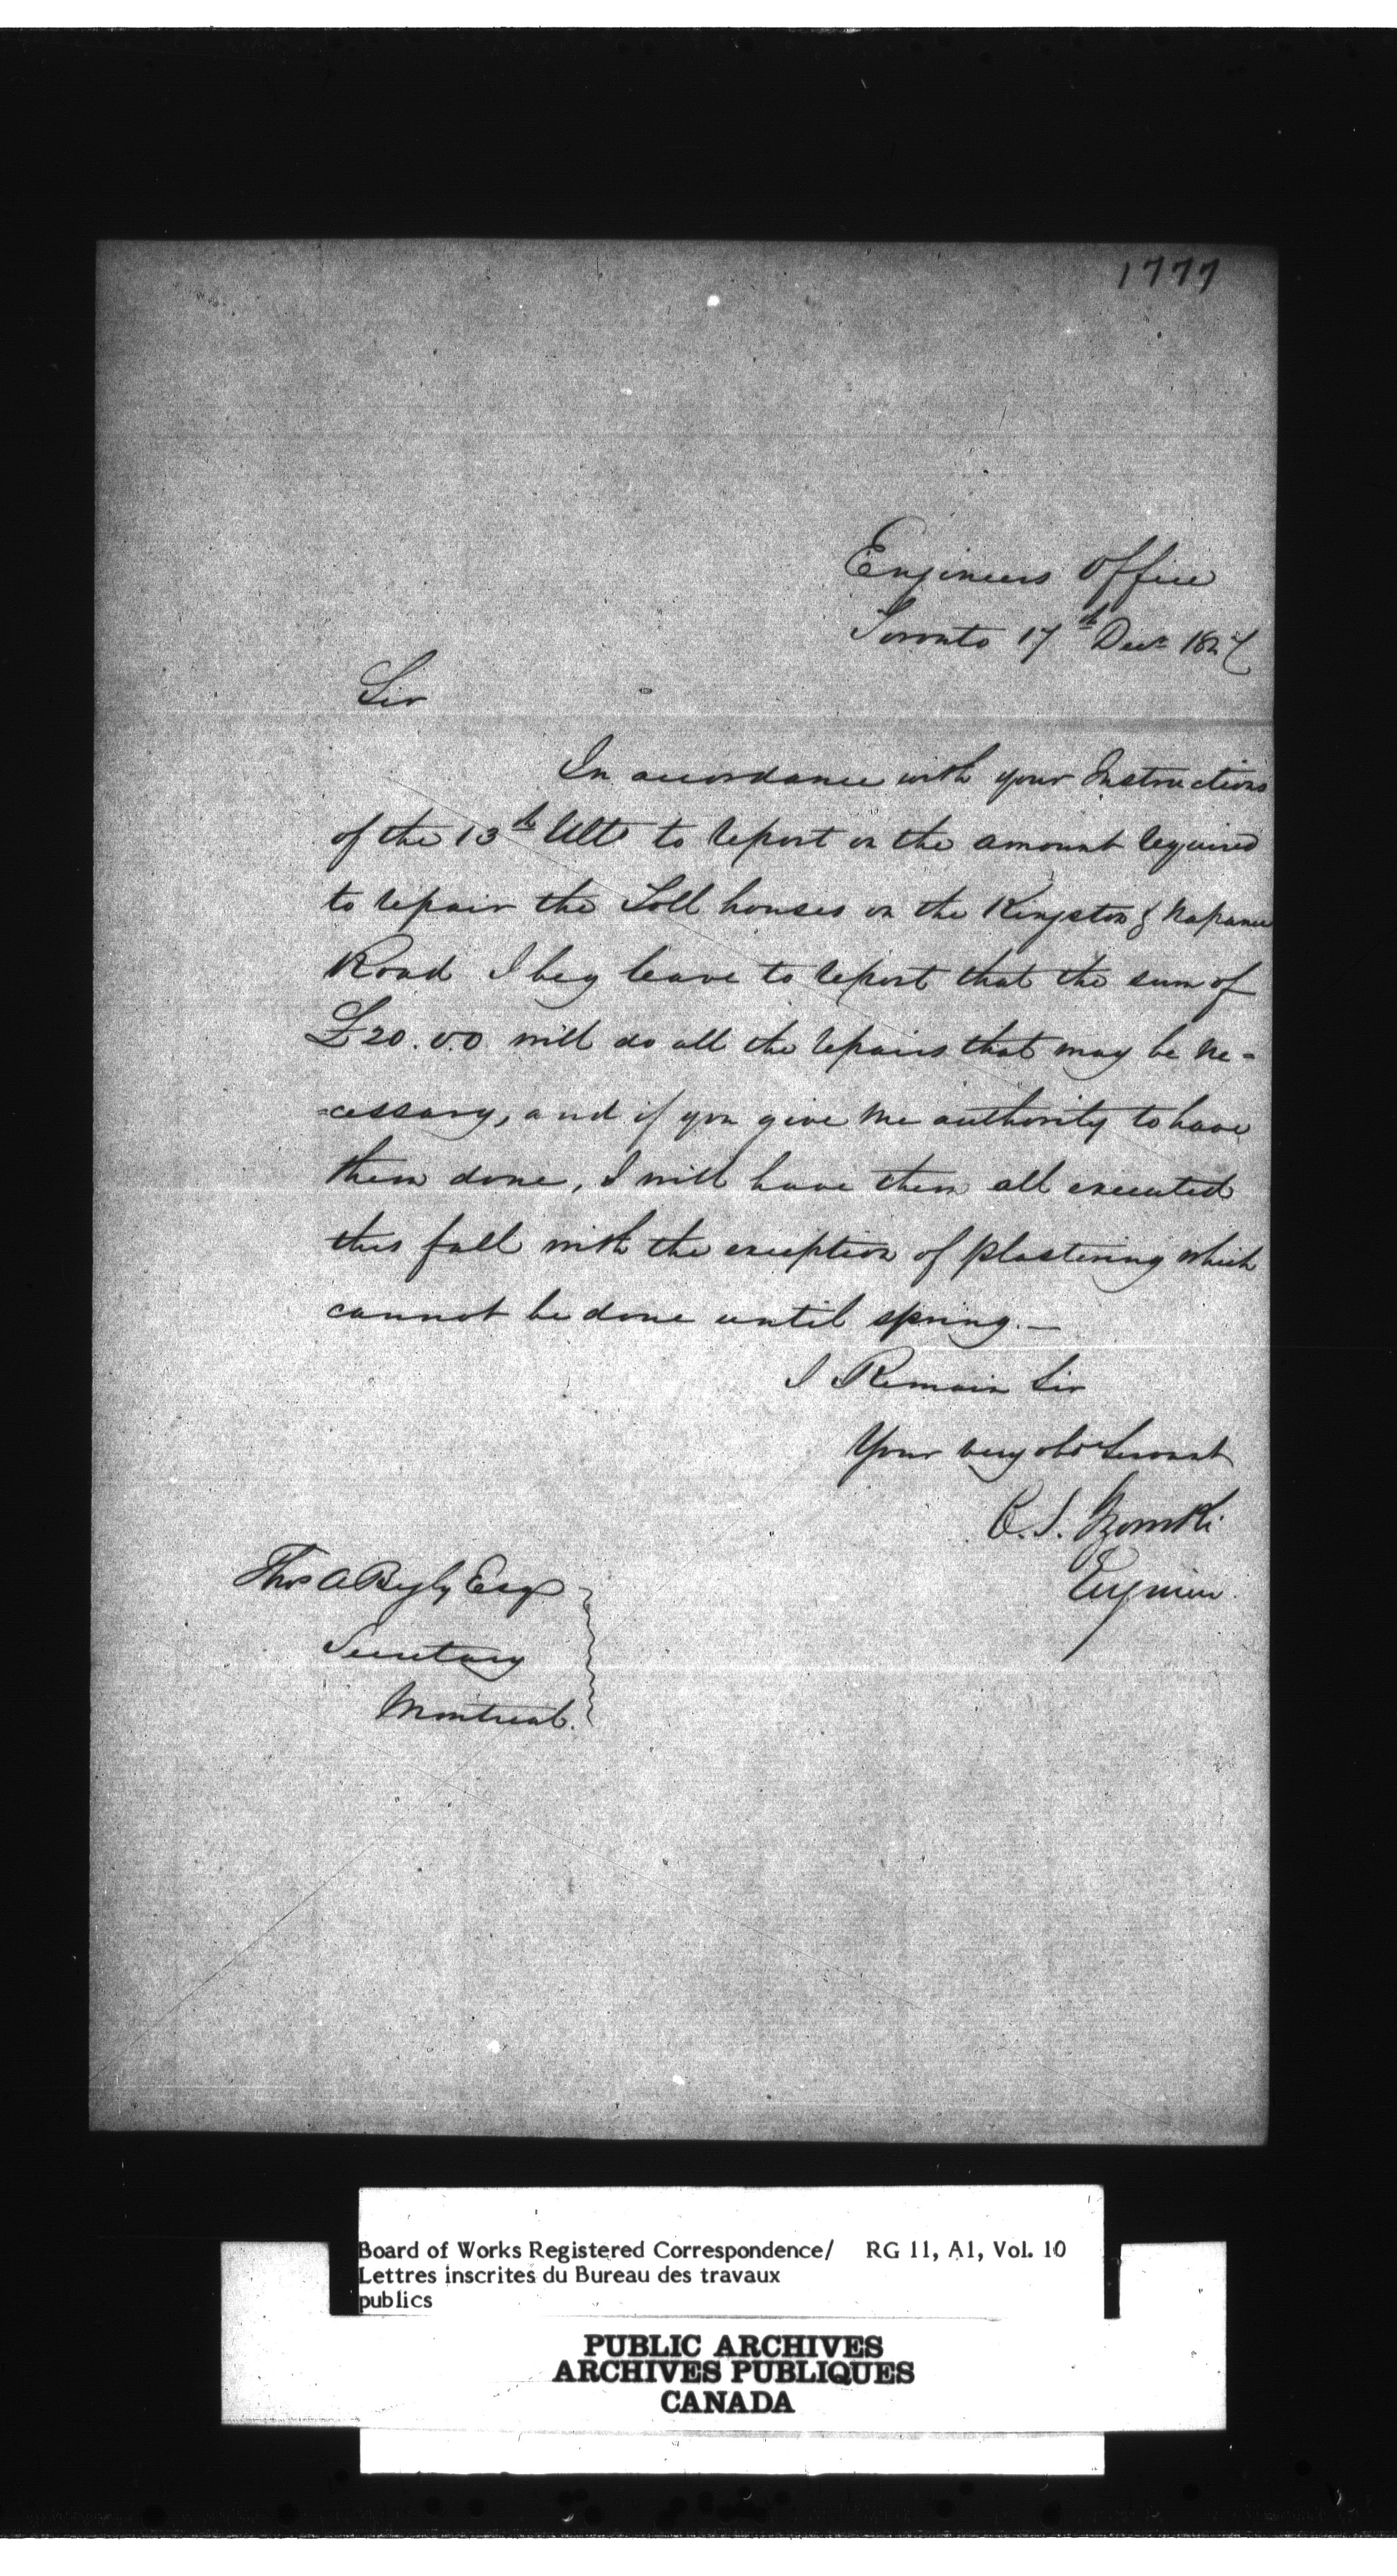 1777
Engineers Office
Toronto 17th Decr 184
Sir
In accordance with your Instructions
of the 13th Ulto to report on the amount required
to repair the Toll houses on the Kingston & Napanee
Road I beg leave to report that the sum of
£20.0.0 will do all the repairs that may be ne-
-cessary, and if you give me authority to have
them done, I will have them all executed
this fall with the exception of plastering which
cannot be done until spring.—
I Remain Sir
Your very obdt Servant
C. S. Gzowski
Engineer
Thos A Begly Esqr
Secretary
Montreal.
Board of Works Registered Correspondence/ RG 11, A1, Vol. 10
Lettres inscrites du Bureau des travaux
publics
PUBLIC ARCHIVES
ARCHIVES PUBLIQUES
CANADA